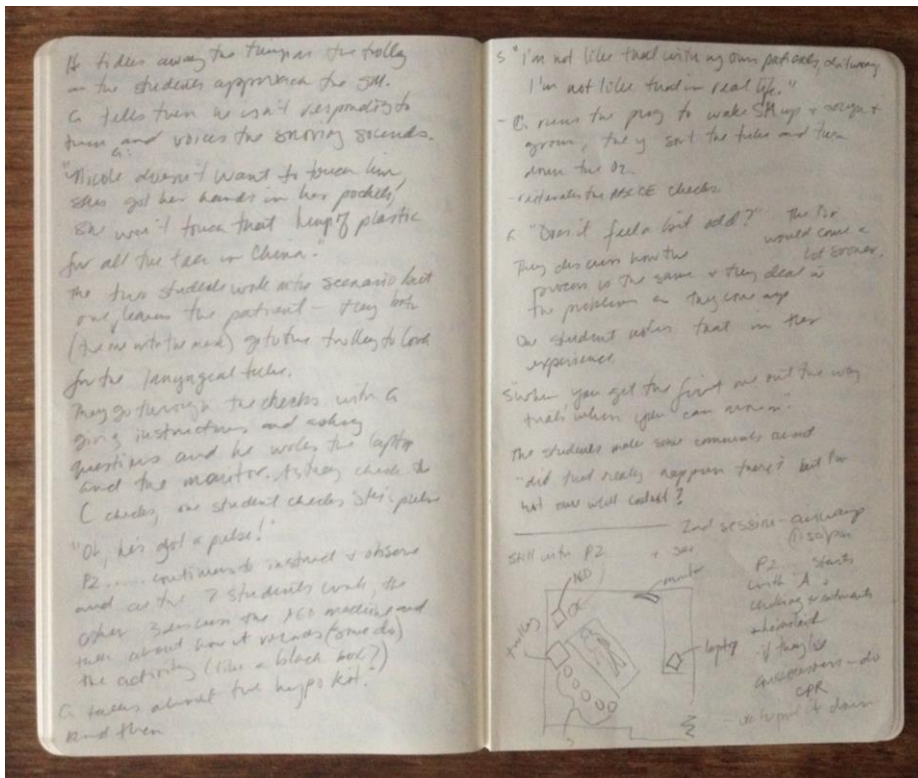 He tidies away the things on the trolly
as the students approach the SM.
G tells them he isn't responding to
them and voices the snoring sounds.
G:
"Nicole doesn't want to touch him,
she's got her hands in her pockets,
she won't touch that heap of plastic
for all the tea in China."
The two students work on the scenario but
one leaves the patient - they both
(the one with the mask) go to the trolley to look
for the laryngeal tubes.
They go through the checks with G
giving instructions and asking
questions and he works the laptop
and the monitor. As they check the
C checks, one student checks pulse
"Oh, he's got a pulse!"
P2 ..... continues to instruct + observe
and as the 2 students work, the
other 3 discuss the machine and
talk about how it records (some do)
the activity (like a black box?)
G talks about the hypo kit.
and then
S "I'm not like that with my own patients,
I'm not like that in real life."
- G runs the prog to wake SM up +
groan, they sort the tubes and turn
down the O2.
- reiterates the ABCDE checks
G "Does it feel a bit odd?" The
would come a
lot sooner.
They discuss how the
process is the same + they deal w
the problems as they come up
One student notes that in their
experience
S "when you get the first one out the way
that's when you can
The students make some comments about
"did that really happen there?" but I'm
not
2nd session -
Still with P2
P2 .... starts
with A +
monitor
trolley
laptop
if they're
unconscious - do
CPR